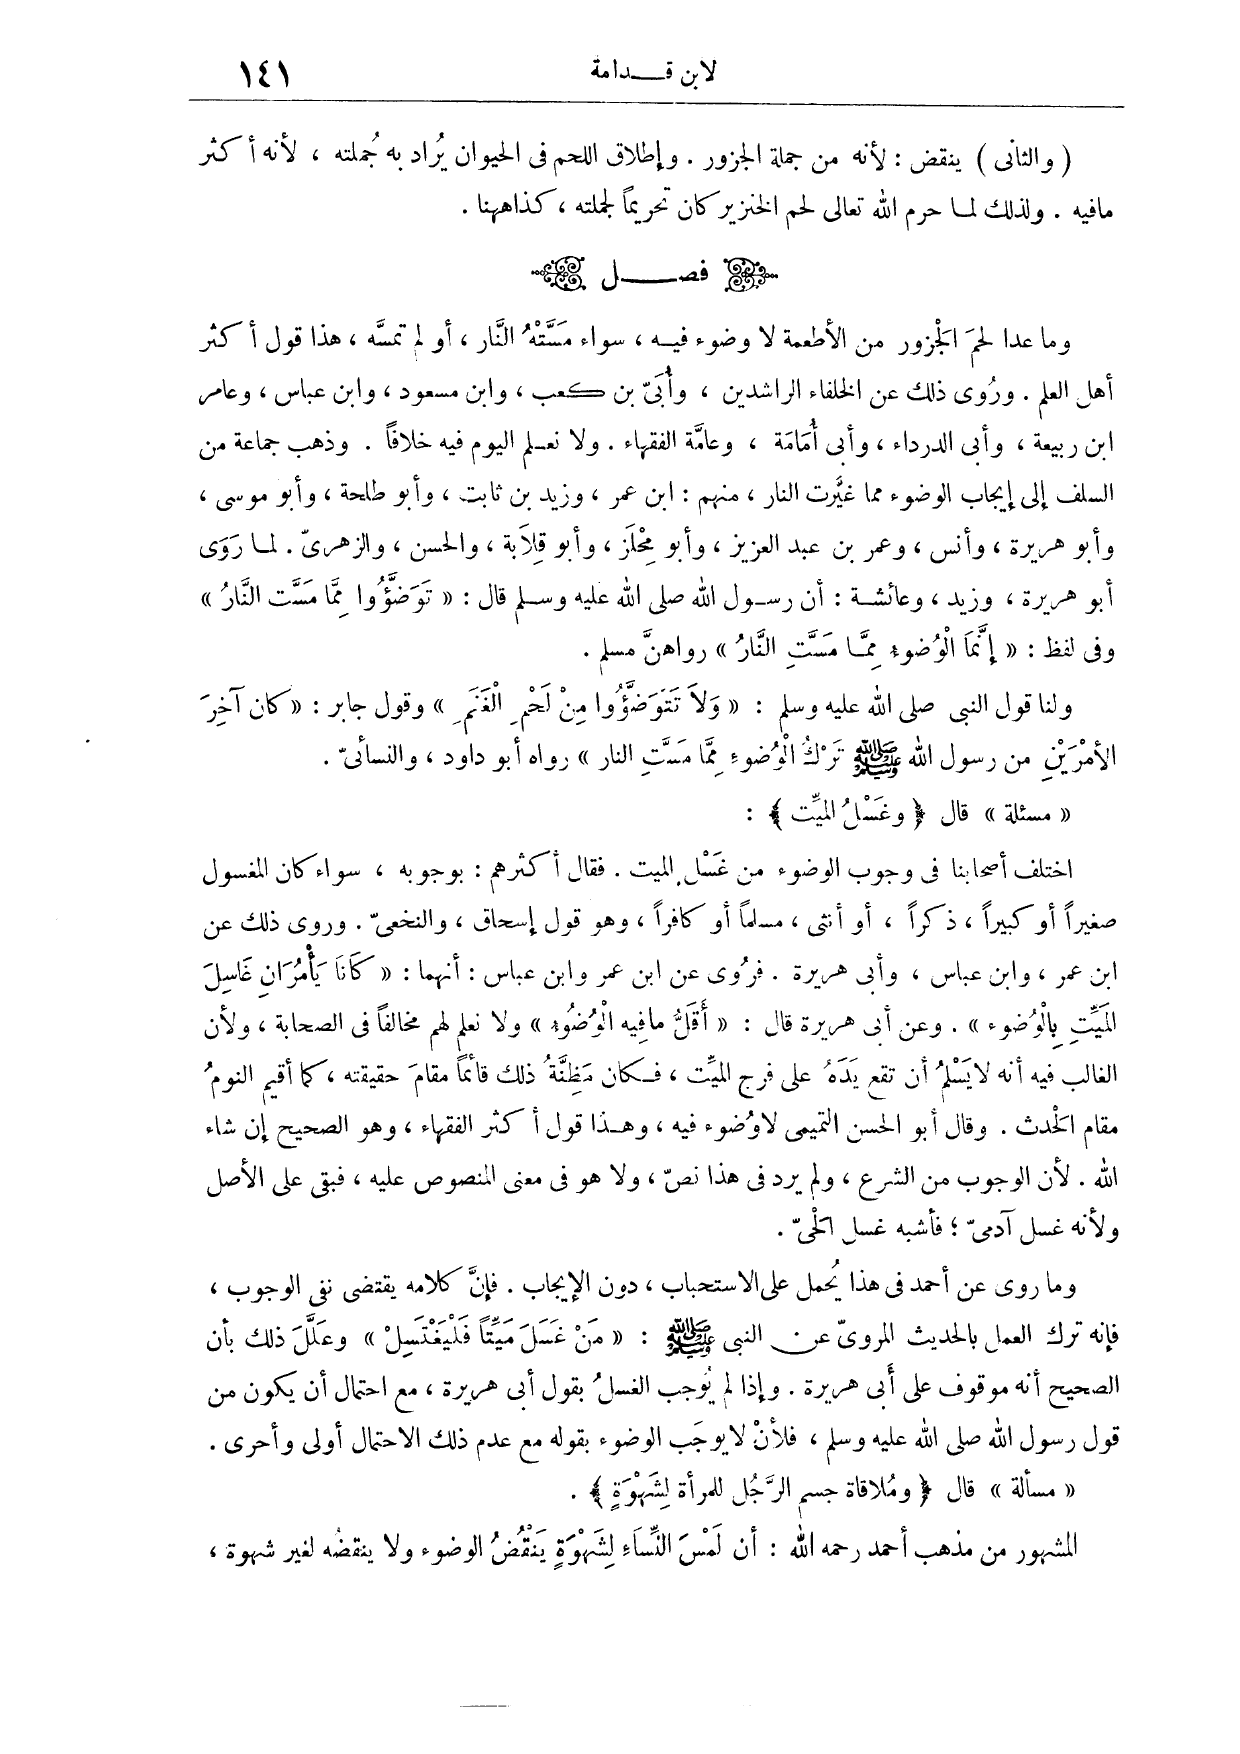 لابن قـــدامة ١٤١
( والثانى ) ينقض : لأنه من جملة الجزور . وإطلاق اللحم فى الحيوان يُراد به جُملته ، لأنه أكثر
مافيه . ولذلك لما حرم الله تعالى لحم الخنزير كان تحريماً لجملته ، كذاههنا .
فصـــــل
وما عدا لحمَ الْجزور من الأطعمة لا وضوء فيه ، سواء مَسَّتْهُ النَّار ، أو لم تمسَّه ، هذا قول أكثر
أهل العلم . ورُوى ذلك عن الخلفاء الراشدين ، وأُبَىّ بن كعب ، وابن مسعود ، وابن عباس ، وعامر
ابن ربيعة ، وأبى الدرداء ، وأبى أُمَامَة ، وعامَّة الفقهاء . ولا نعلم اليوم فيه خلافاً . وذهب جماعة من
السلف إلى إيجاب الوضوء مما غيَّرت النار ، منهم : ابن عمر ، وزيد بن ثابت ، وأبو طلحة ، وأبو موسى ،
وأبو هريرة ، وأنس ، وعمر بن عبد العزيز ، وأبو مِجْلَز ، وأبو قِلَابة ، والحسن ، والزهرىّ . لما رَوَى
أبو هريرة ، وزيد ، وعائشة : أن رسول الله صلى الله عليه وسلم قال : « تَوَضَّؤُوا مِمَّا مَسَّت النَّارُ »
وفى لفظ : « إِنَّمَا الْوُضوءِ مِمَّا مَسَّتِ النَّارُ » رواهنَّ مسلم .
ولنا قول النبى صلى الله عليه وسلم : « وَلاَ تَتَوَضَّؤُوا مِنْ لَحْمِ الْغَنَمِ » وقول جابر : « كان آخِرَ
الأمْرَيْنِ من رسول الله ﷺ تَرْكُ الْوُضوءِ مِمَّا مَسَّتِ النار » رواه أبو داود ، والنسائىّ .
« مسئلة » قال ﴿ وغَسْلُ الميِّت ﴾ :
اختلف أصحابنا فى وجوب الوضوء من غَسْلِ الميت . فقال أكثرهم : بوجوبه ، سواء كان المغسول
صغيراً أو كبيراً ، ذكراً ، أو أنثى ، مسلماً أو كافراً ، وهو قول إسحاق ، والنخعىّ . وروى ذلك عن
ابن عمر ، وابن عباس ، وأبى هريرة . فرُوى عن ابن عمر وابن عباس : أنهما : « كَانَا يَأْمُرَانِ غَاسِلَ
المَيِّتِ بِالْوُضوء » . وعن أبى هريرة قال : « أَقَلُّ مافِيه الْوُضُوءِ » ولا نعلم لهم مخالفاً فى الصحابة ، ولأن
الغالب فيه أنه لايَسْلَمُ أن تقع يَدَهُ على فرج الميِّت ، فكان مَظِنَّةُ ذلك قائماً مقامَ حقيقته ، كما أقيم النومُ
مقام الْحدث . وقال أبو الحسن التميمى لاوُضوء فيه ، وهذا قول أكثر الفقهاء ، وهو الصحيح إن شاء
الله . لأن الوجوب من الشرع ، ولم يرد فى هذا نصّ ، ولا هو فى معنى المنصوص عليه ، فبقى على الأصل
ولأنه غسل آدمىّ ؛ فأشبه غسل الْحىّ .
وما روى عن أحمد فى هذا يُحمل على الاستحباب ، دون الإيجاب . فإنَّ كلامه يقتضى نفى الوجوب ،
فإنه ترك العمل بالحديث المروىّ عن النبى ﷺ : « مَنْ غَسَلَ مَيِّتاً فَلْيَغْتَسِلْ » وعلَّلَ ذلك بأن
الصحيح أنه موقوف على أَبى هريرة . وإذا لم يُوجب الغسلُ بقول أبى هريرة ، مع احتمال أن يكون من
قول رسول الله صلى الله عليه وسلم ، فلأنْ لايوجَب الوضوء بقوله مع عدم ذلك الاحتمال أولى وأحرى .
« مسألة » قال ﴿ ومُلاقاة جسم الرَّجُل للمرأة لِشَهْوَةٍ ﴾ .
المشهور من مذهب أحمد رحمه الله : أن لَمْسَ النِّسَاءِ لِشَهْوَةٍ يَنْقُضُ الوضوء ولا ينقضُه لغير شهوة ،